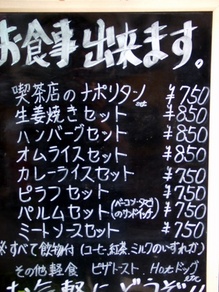 お食事出来ます。
喫茶店のナポリタン etc ¥750
生姜焼きセット ¥850
ハンバーグセット ¥850
オムライスセット ¥850
カレーライスセット ¥750
ピラフセット ¥750
パルムセット(ベーコン・タマゴのサンドイッチ) ¥750
ミートソースセット ¥750
※すべて飲物付(コーヒ・紅茶、ミルクのいずれか)
その他軽食 ピザトースト、Hotドッグ etc
お気軽にどうぞ!!